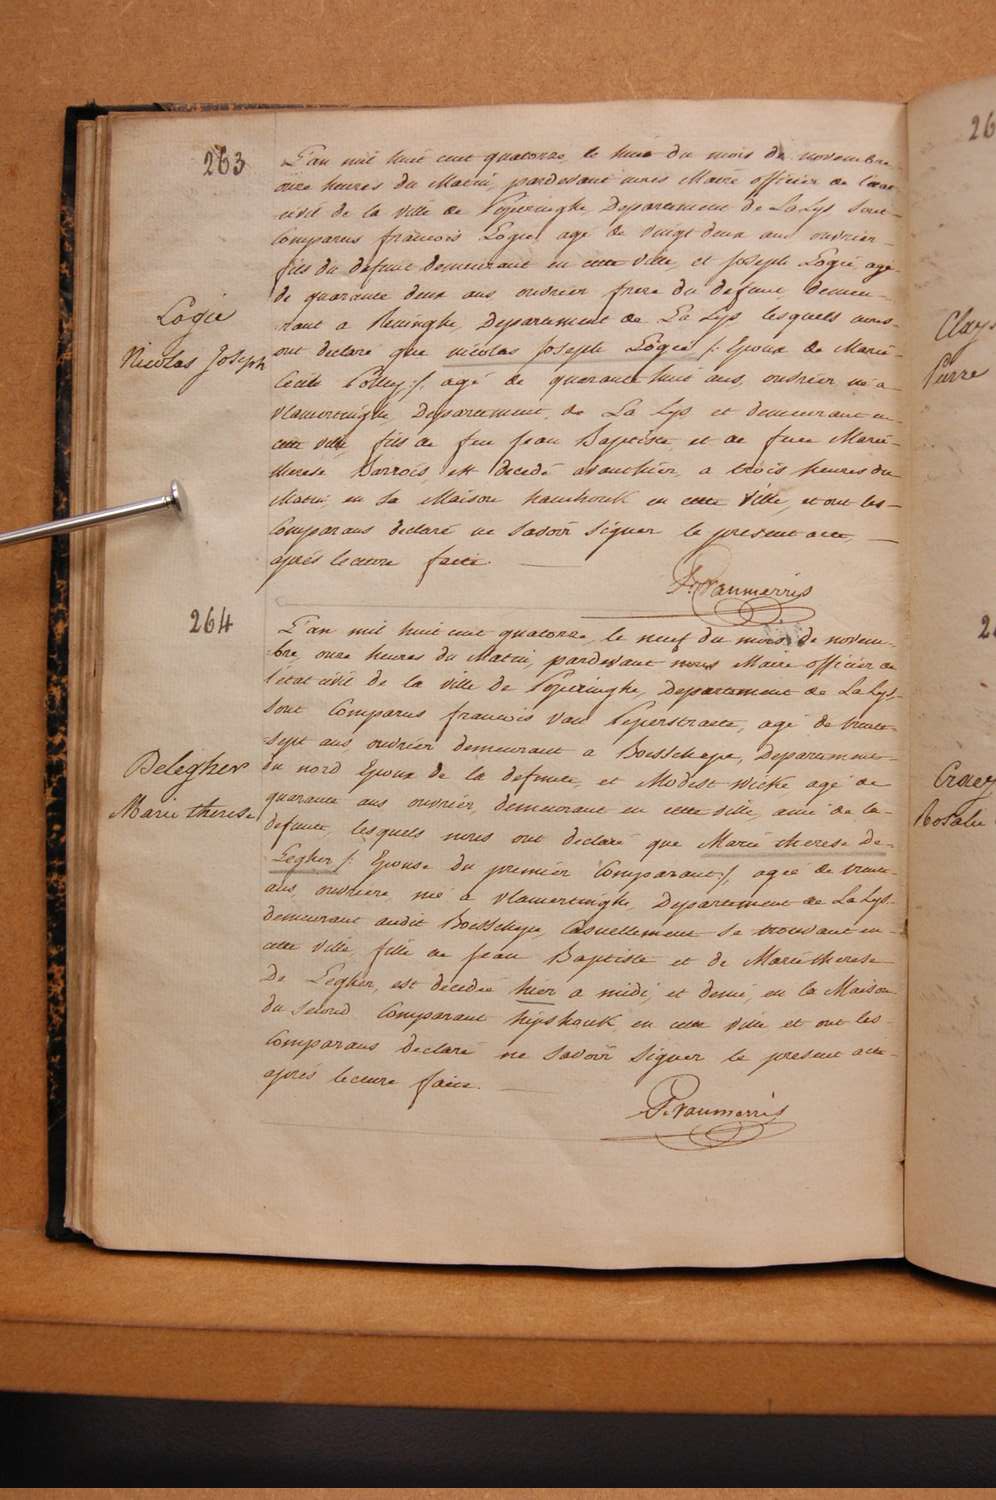 263
L'an mil huit cent quatorze le huit du mois de novembre
onze heures du Matin, pardevant nous Maire officier de l'etat
civil de la ville de Poperinghe Departement de La Lys sont
Comparus francois Logie, agé de vingt deux ans ouvrier
fils du defunt demeurant en cette ville et Joseph Logie, agé
de quarante deux ans ouvrier frere du defunt, demeu-
rant a Reninghe, Departement de La Lys lesquels nous
ont declaré que nicolas Joseph Logie /: Epoux de Marie
Cecile :/, agé de quarante huit ans, ouvrier né a
vlamertinghe, Departement de La Lys et demeurant en
cette ville, fils de feu Jean Baptiste et de feue Marie
therese Barrois, est decedé avanthier, a trois heures du
Matin en sa Maison en cette ville, et ont les
Comparans declaré ne savoir signer le present acte,
aprés lecture faite.
Logie
Nicolas Joseph
P. Vanmerris
264
L'an mil huit cent quatorze, le neuf du mois de novem-
bre, onze heures du Matin, pardevant nous Maire officier de
l'état civil de la ville de Poperinghe, Departement de La Lys
sont Comparus francois Van Peperstraete, agé de trente
sept ans ouvrier demeurant a Boesschepe, Departement
du nord Epoux de la defunte, et Modest wicke agé de
quarante ans ouvrier, demeurant en cette ville, ami de la
defunte, lesquels nous ont declaré que Marie therese de
Legher /: Epouse du premier Comparant :/, agée de trente
ans, ouvriere, née a vlamertinghe, Departement de La Lys
demeurant audit Boesschepe, Casuellement se trouvant en
cette ville, fille de Jean Baptiste et de Marie therese
De Legher, est decedée hier a midi, et demi, en la Maison
du second Comparant hipshouk en cette ville et ont les
Comparans declaré ne savoir signer le present acte
aprés lecture faite.
Delegher
Marie therese
P. Vanmerris
26
Clays
Pierre
Craey
Rosalie